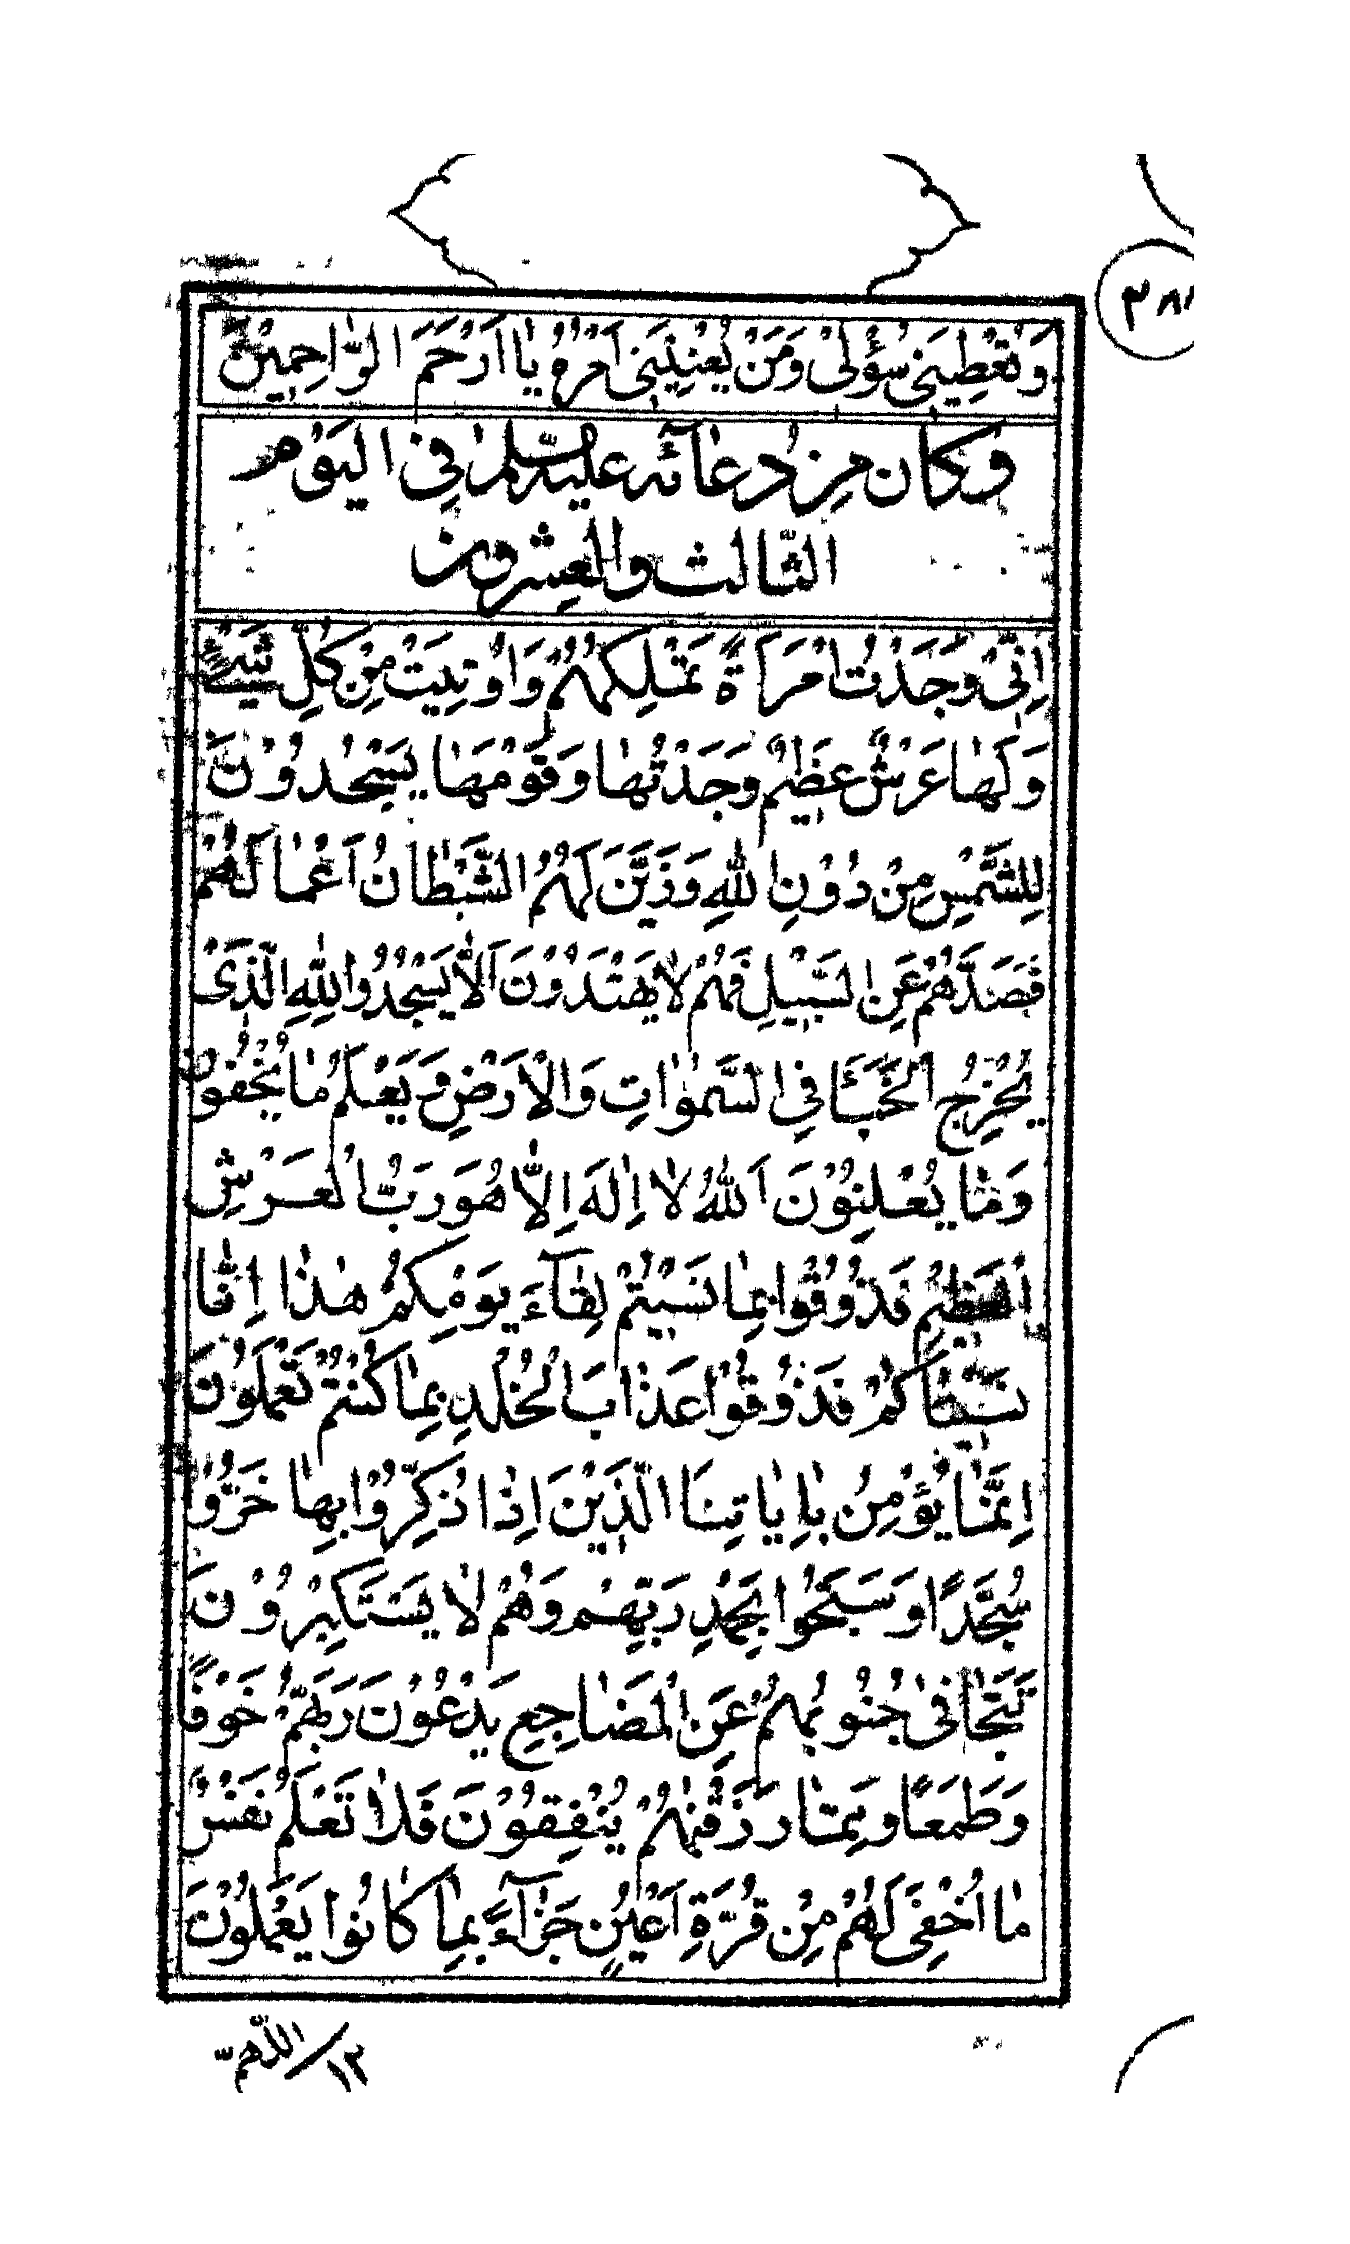 ٣٨١
وَتُعْطِيَنِى سُؤْلِىْ وَمَنْ يُعْنِيْنِىْ اَمْرُهُ يٰا اَرْحَمَ الرّٰاحِمِيْنَ
وكان من دعائه عليه السلم في اليوم
الثالث والعشرون
اِنِّىْ وَجَدْتُ امْرَاَةً تَمْلِكُهُمْ وَاُوْتِيَتْ مِنْ كُلِّ شَيْءٍ
وَلَهٰا عَرْشٌ عَظِيْمٌ وَجَدْتُهٰا وَقَوْمَهٰا يَسْجُدُوْنَ
لِلشَّمْسِ مِنْ دُوْنِ اللّٰهِ وَزَيَّنَ لَهُمُ الشَّيْطٰانُ اَعْمٰالَهُمْ
فَصَدَّهُمْ عَنِ السَّبِيْلِ فَهُمْ لٰا يَهْتَدُوْنَ اَلّٰا يَسْجُدُوا لِلّٰهِ الَّذِىْ
يُخْرِجُ الْخَبْأَ فِى السَّمٰوٰاتِ وَالْاَرْضِ وَيَعْلَمُ مٰا يُخْفُونَ
وَمٰا يُعْلِنُوْنَ اَللّٰهُ لٰا اِلٰهَ اِلّٰا هُوَ رَبُّ الْعَرْشِ
الْعَظِيْمِ فَذُوْقُوْا بِمٰا نَسِيْتُمْ لِقٰآءَ يَوْمِكُمْ هٰذٰا اِنّٰا
نَسِيْنٰاكُمْ فَذُوْقُوْا عَذٰابَ الْخُلْدِ بِمٰا كُنْتُمْ تَعْمَلُوْنَ
اِنَّمٰا يُؤْمِنُ بِاٰيٰاتِنَا الَّذِيْنَ اِذٰا ذُكِّرُوْا بِهٰا خَرُّوْا
سُجَّدًا وَسَبَّحُوا بِحَمْدِ رَبِّهِمْ وَهُمْ لٰا يَسْتَكْبِرُوْنَ
تَتَجٰافٰى جُنُوبُهُمْ عَنِ الْمَضٰاجِعِ يَدْعُوْنَ رَبَّهُمْ خَوْفًا
وَطَمَعًا وَمِمّٰا رَزَقْنٰهُمْ يُنْفِقُوْنَ فَلٰا تَعْلَمُ نَفْسٌ
مٰا اُخْفِىَ لَهُمْ مِنْ قُرَّةِ اَعْيُنٍ جَزٰآءً بِمٰا كٰانُوْا يَعْمَلُوْنَ
١٢/ اللّهمّ